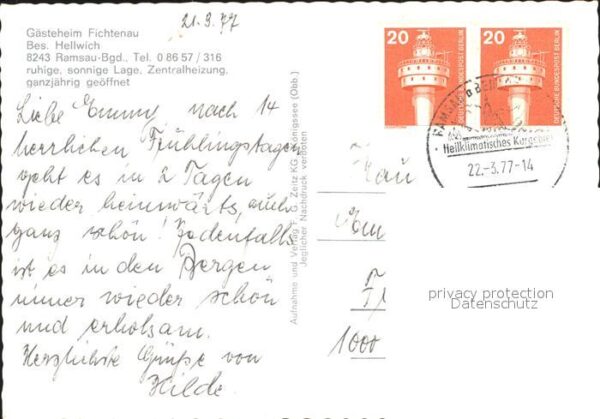 21.3.77
Gästeheim Fichtenau
Bes. Hellwich
8243 Ramsau-Bgd., Tel. 0 86 57 / 316
ruhige, sonnige Lage, Zentralheizung,
ganzjährig geöffnet
Liebe Emmy, nach 14
herrlichen Frühlingstagen
geht es in 2 Tagen
wieder heimwärts, auch
ganz schön! Jedenfalls
ist es in den Bergen
immer wieder schön
und erholsam.
Herzlichste Grüße von
Hilde.
Aufnahme und Verlag: F. G. Zeitz KG., Königssee (Obb.)
Jeglicher Nachdruck verboten
20 DEUTSCHE BUNDESPOST BERLIN
20 DEUTSCHE BUNDESPOST BERLIN
RAMSAU b BERCH
Heilklimatisches Kurgebiet
22.-3.77-14
Frau
Em
1000
privacy protection
Datenschutz